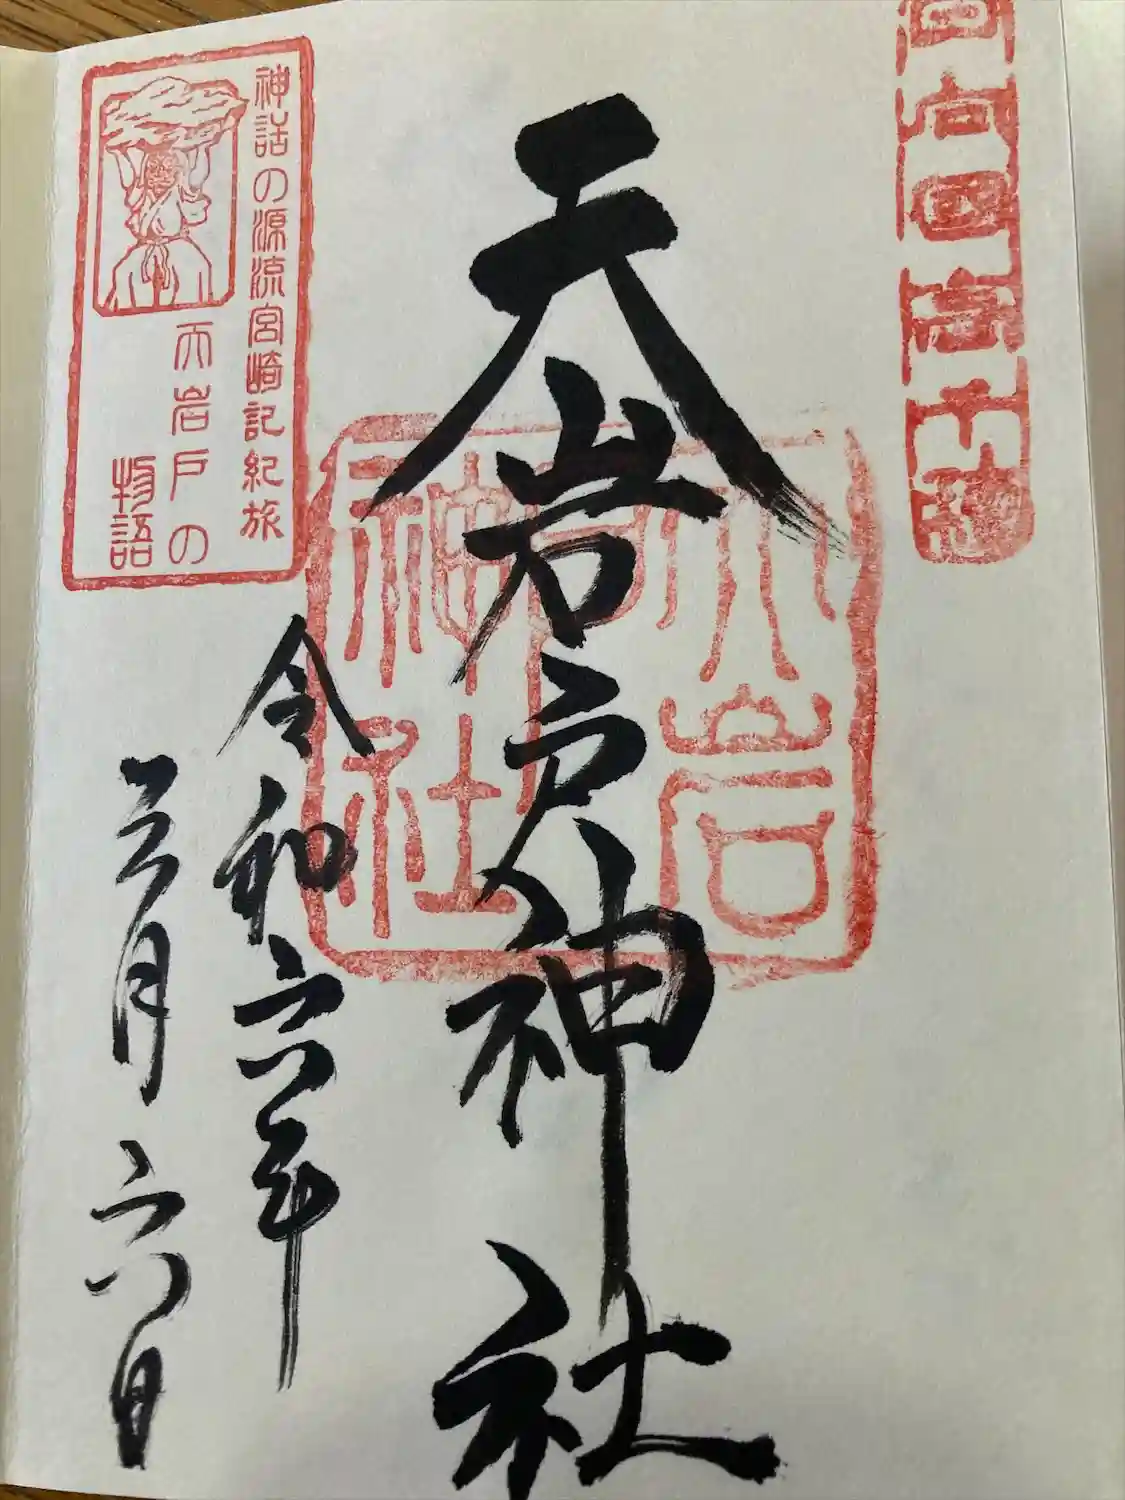 向國高千穂
天岩戸神社
天岩
戸
神社
神話の源流宮崎記紀旅
天岩戸の
物語
令和六年
三月六日